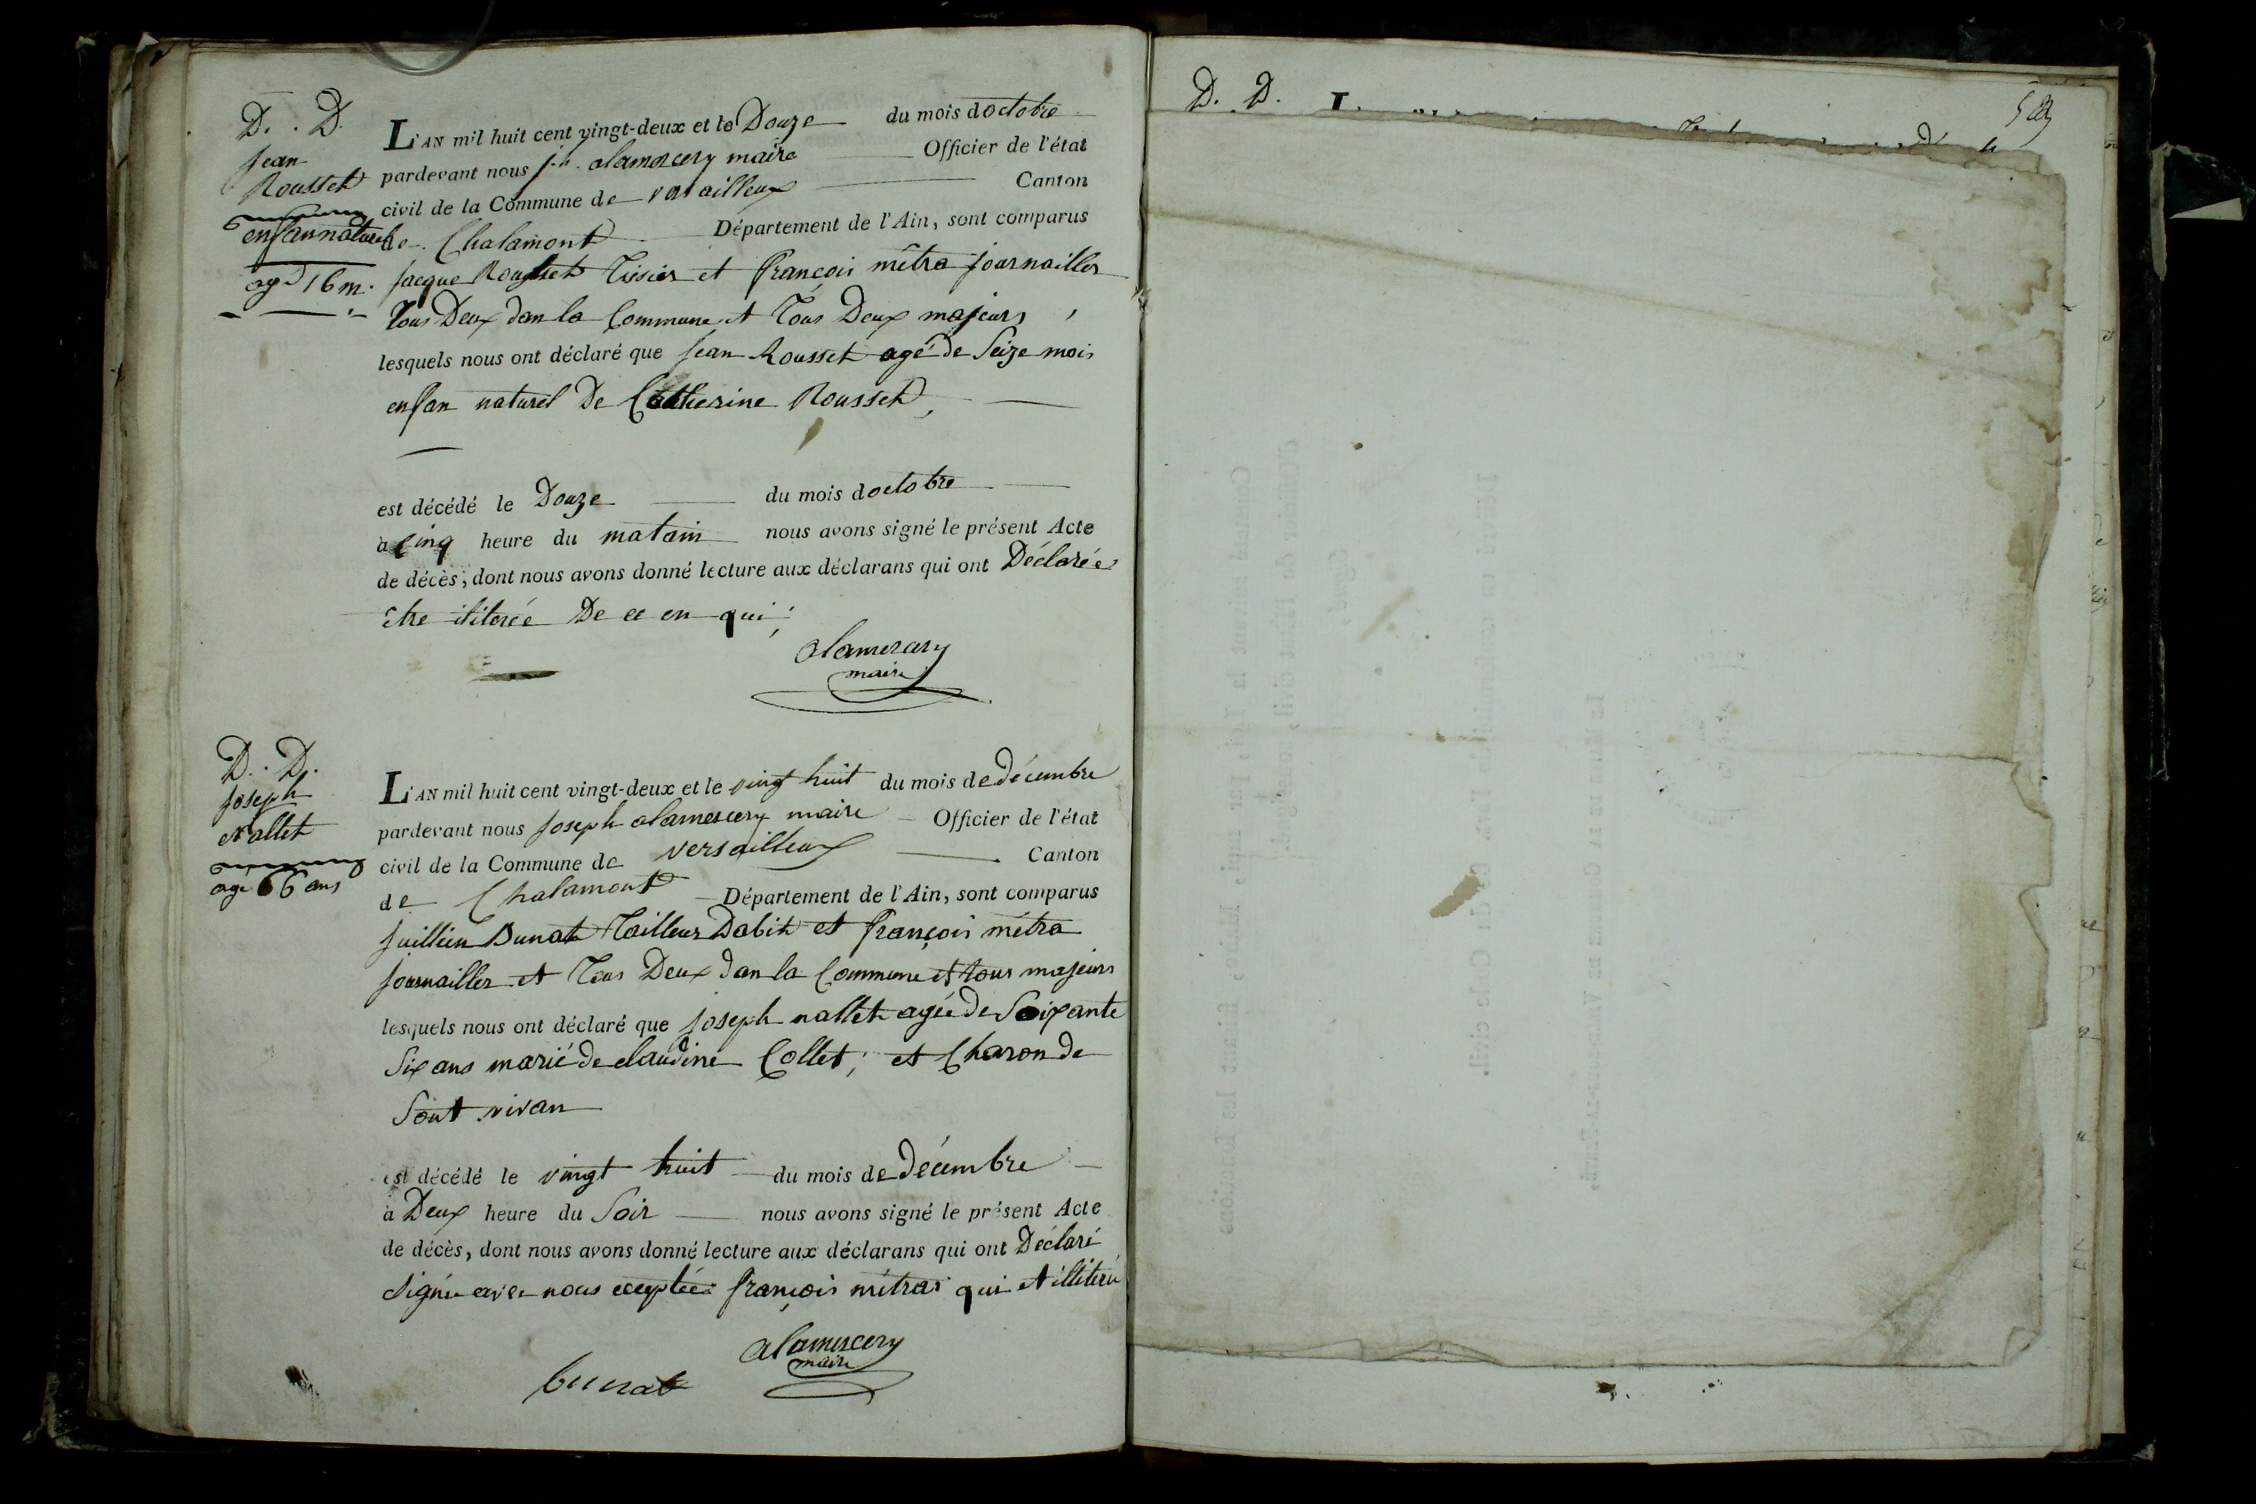 D. . D.
Jean
Rousset
enfan naturel
agé 16 m.
L'AN mil huit cent vingt-deux et le Douze du mois doctobre
pardevant nous jh. alamercery maire Officier de l'état
civil de la Commune de varailleux Canton
de Chalamont Département de l'Ain, sont comparus
jacque Rousset Tisier et françois mêtra journaillier
tous Deux dan la Commune et Tous Deux majeurs,
lesquels nous ont déclaré que jean Rousset agé de Seize mois
enfan naturel De Catherine Rousset,
est décédé le Douze du mois doctobre
a cinq heure du matain nous avons signé le présent Acte
de décès; dont nous avons donné lecture aux déclarans qui ont Déclarée
être ilitérée De ce en qui;
alamercery
maire
D. . D.
joseph
nallet
agé 66 ans
L'AN mil huit cent vingt-deux et le vingt huit du mois de décembre
pardevant nous joseph alamercery maire Officier de l'état
civil de la Commune de versailleux Canton
de Chalamont Département de l'Ain, sont comparus
juillien Bunat Tailleur Dabit et françois métra
journaillier et Tous Deux dan la Commune et tous majeurs
lesquels nous ont déclaré que joseph nallet agée de Soixante
Six ans marié de claudine Collet; et Charon de
Sont vivan
est décédé le vingt huit du mois de décembre
à Deux heure du Soir nous avons signé le présent Acte
de décès, dont nous avons donné lecture aux déclarans qui ont Déclaré
signée avec nous eceptée françois métras qui et illitéré
alamercery
maire
bunat
D. D.